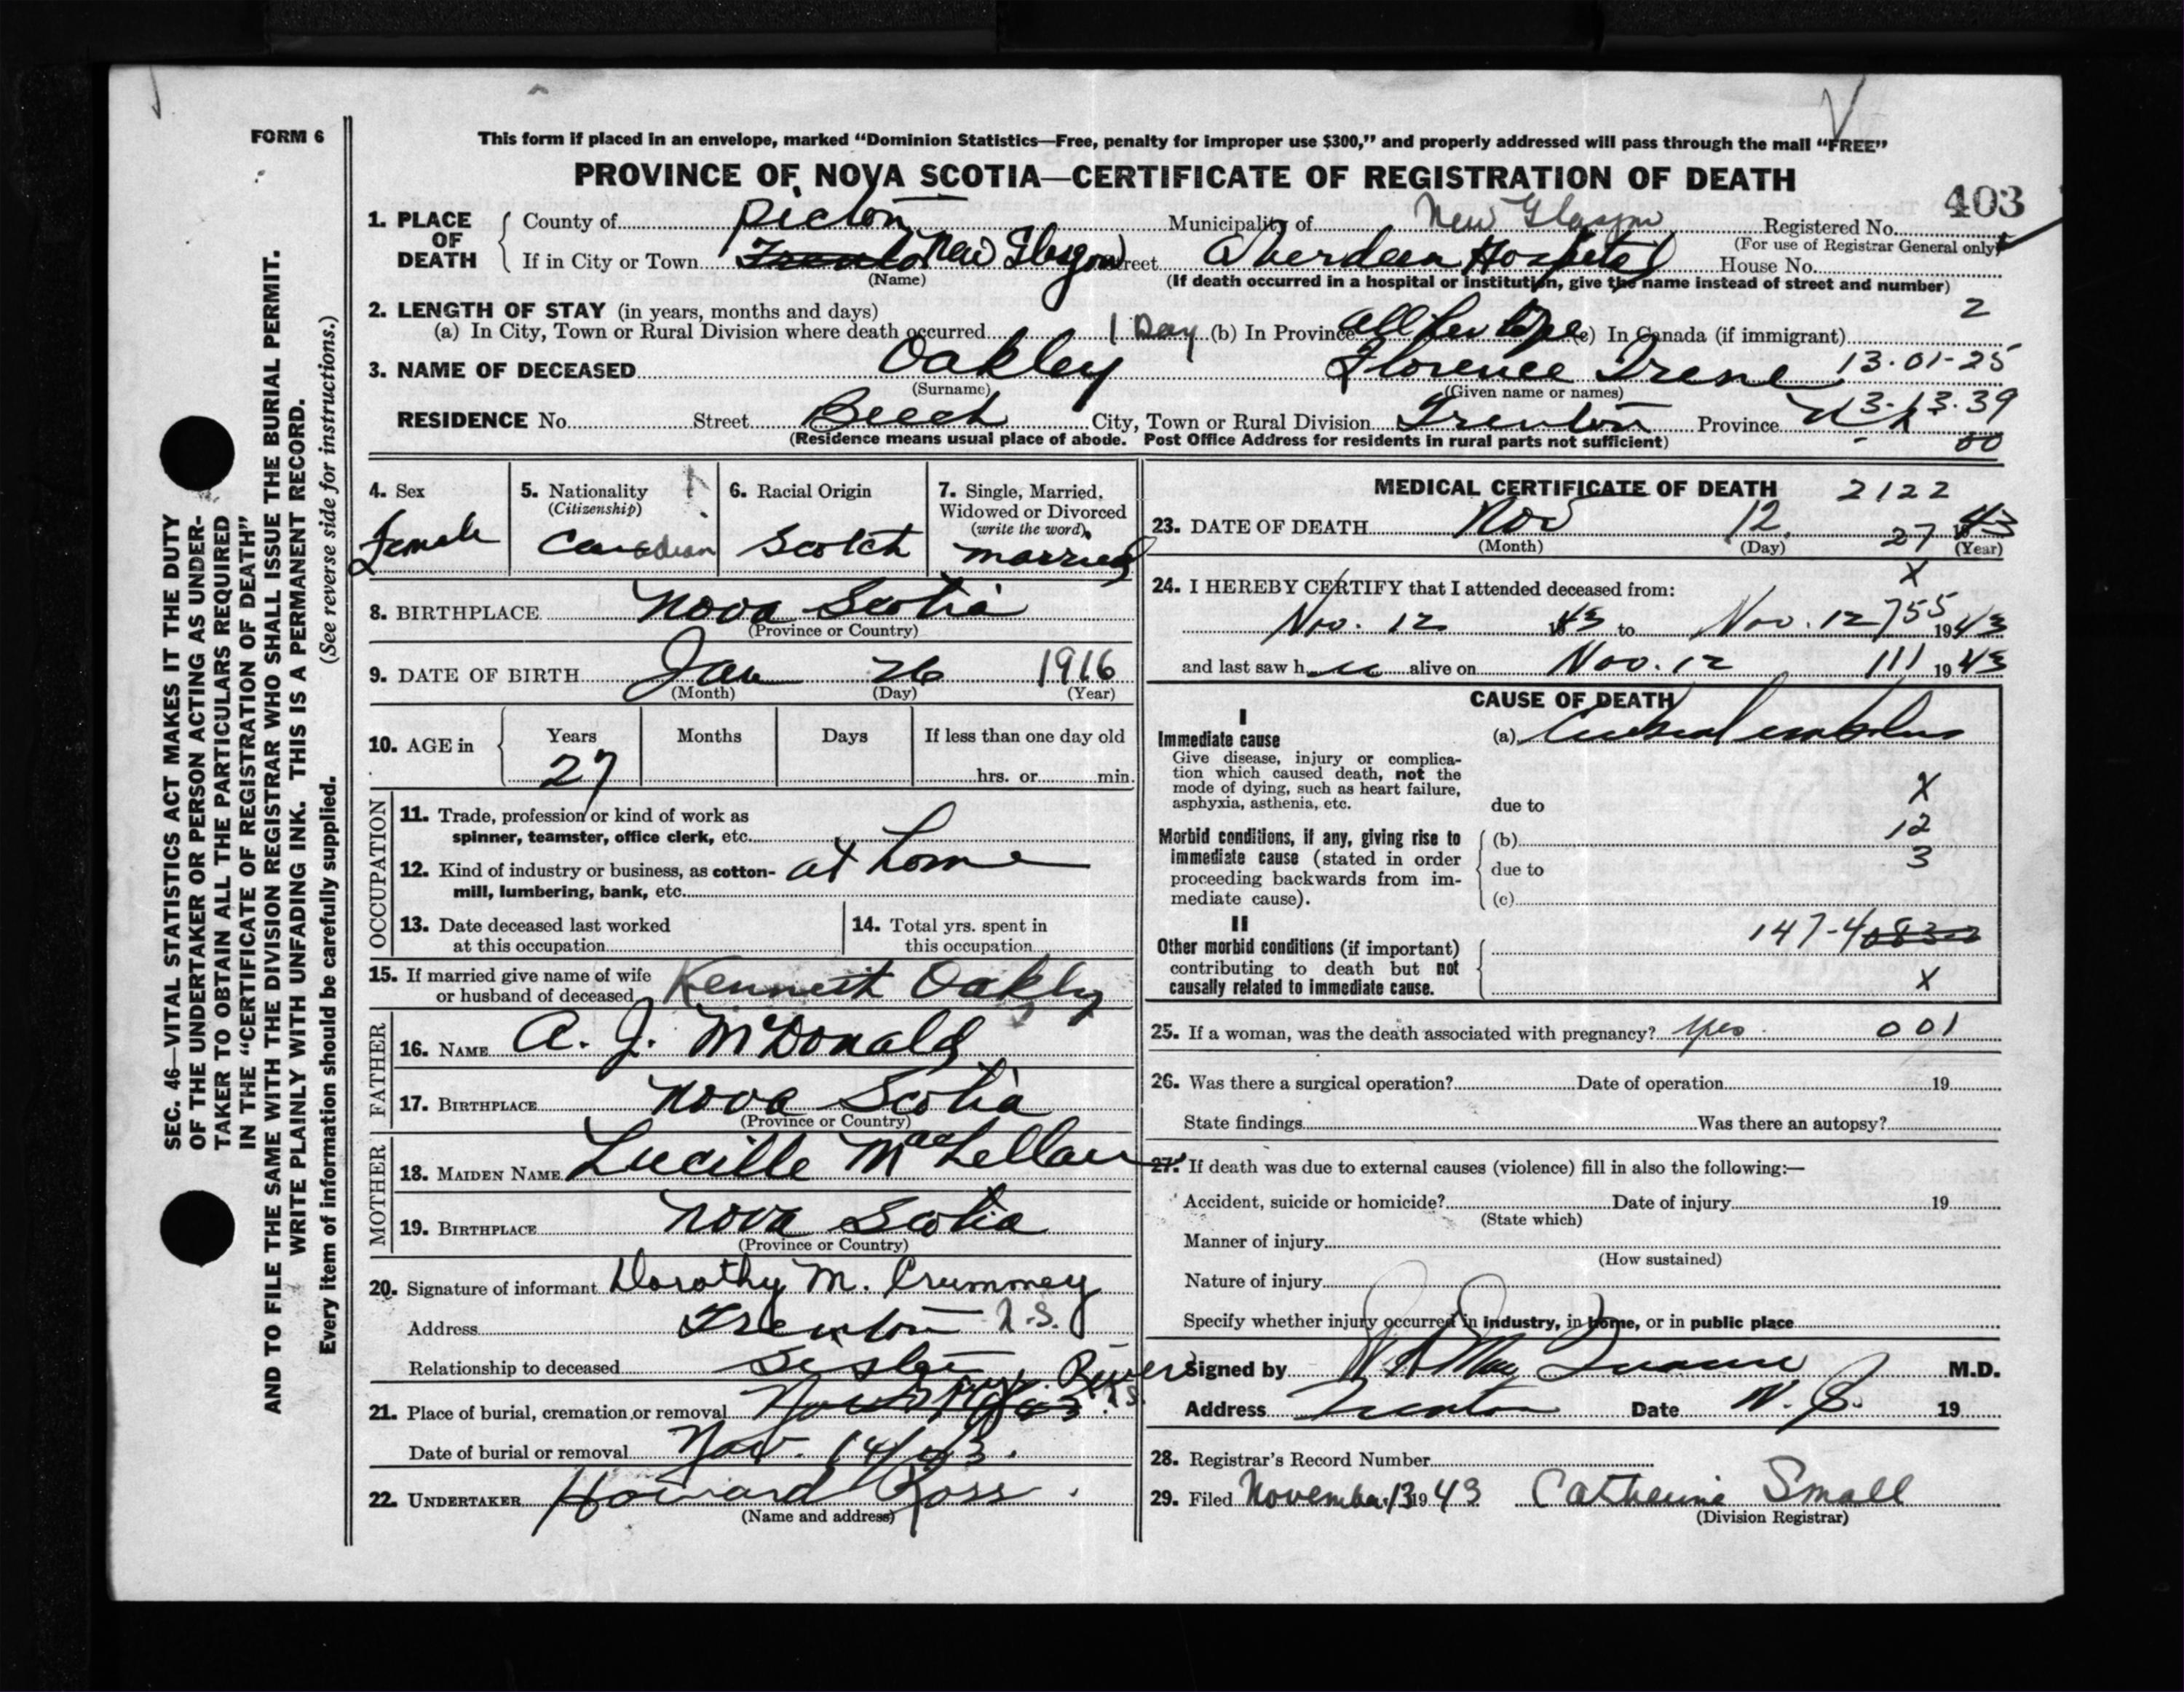 FORM 6
This form if placed in an envelope, marked “Dominion Statistics—Free, penalty for improper use $300,” and properly addressed will pass through the mail “FREE”
PROVINCE OF NOVA SCOTIA—CERTIFICATE OF REGISTRATION OF DEATH
403
1. PLACE OF DEATH
County of Pictou Municipality of New Glasgow Registered No.
(For use of Registrar General only)
If in City or Town Trenton New Glasgow Street Aberdeen Hospital House No.
(Name) (If death occurred in a hospital or institution, give the name instead of street and number)
2. LENGTH OF STAY (in years, months and days) 2
(a) In City, Town or Rural Division where death occurred 1 Day (b) In Province All her life (c) In Canada (if immigrant)
3. NAME OF DECEASED Oakley Florence Irene 13-01-25
(Surname) (Given name or names)
RESIDENCE No. Street Beech City, Town or Rural Division Trenton Province N.S. 13-13-39
(Residence means usual place of abode. Post Office Address for residents in rural parts not sufficient) 00
4. Sex
Female
5. Nationality
(Citizenship)
Canadian
6. Racial Origin
Scotch
7. Single, Married, Widowed or Divorced
(write the word)
married
8. BIRTHPLACE Nova Scotia
(Province or Country)
9. DATE OF BIRTH Jan 26 1916
(Month) (Day) (Year)
10. AGE in
Years Months Days If less than one day old
27 hrs. or min.
OCCUPATION
11. Trade, profession or kind of work as
spinner, teamster, office clerk, etc.
12. Kind of industry or business, as cotton- at home
mill, lumbering, bank, etc.
13. Date deceased last worked
at this occupation
14. Total yrs. spent in
this occupation
15. If married give name of wife
or husband of deceased Kenneth Oakley
FATHER
16. NAME A. J. McDonald
17. BIRTHPLACE Nova Scotia
(Province or Country)
MOTHER
18. MAIDEN NAME Lucille MacLellan
19. BIRTHPLACE Nova Scotia
(Province or Country)
20. Signature of informant Dorothy M. Crummey
Address Trenton N.S.
Relationship to deceased Sister
21. Place of burial, cremation or removal River N.S.
Date of burial or removal Nov. 14/43.
22. UNDERTAKER Howard Ross.
(Name and address)
MEDICAL CERTIFICATE OF DEATH 2122
23. DATE OF DEATH Nov 12 27 1943
(Month) (Day) (Year)
24. I HEREBY CERTIFY that I attended deceased from: X
Nov. 12 1943 to Nov. 12 755 1943
and last saw her alive on Nov. 12 111 1943
CAUSE OF DEATH
I
Immediate cause (a) Cerebral embolus
Give disease, injury or complica-
tion which caused death, not the
mode of dying, such as heart failure,
asphyxia, asthenia, etc. due to X
Morbid conditions, if any, giving rise to (b) 12
immediate cause (stated in order due to 3
proceeding backwards from im-
mediate cause). (c)
II
Other morbid conditions (if important) 147-4
contributing to death but not
causally related to immediate cause. X
25. If a woman, was the death associated with pregnancy? yes 001
26. Was there a surgical operation? Date of operation 19
State findings Was there an autopsy?
27. If death was due to external causes (violence) fill in also the following:—
Accident, suicide or homicide? Date of injury 19
(State which)
Manner of injury
(How sustained)
Nature of injury
Specify whether injury occurred in industry, in home, or in public place
Signed by M.D.
Address Trenton Date N.S. 19
28. Registrar's Record Number
29. Filed November 13 1943 Catherine Small
(Division Registrar)
SEC. 46—VITAL STATISTICS ACT MAKES IT THE DUTY
OF THE UNDERTAKER OR PERSON ACTING AS UNDER-
TAKER TO OBTAIN ALL THE PARTICULARS REQUIRED
IN THE “CERTIFICATE OF REGISTRATION OF DEATH”
AND TO FILE THE SAME WITH THE DIVISION REGISTRAR WHO SHALL ISSUE THE BURIAL PERMIT.
WRITE PLAINLY WITH UNFADING INK. THIS IS A PERMANENT RECORD.
Every item of information should be carefully supplied. (See reverse side for instructions.)